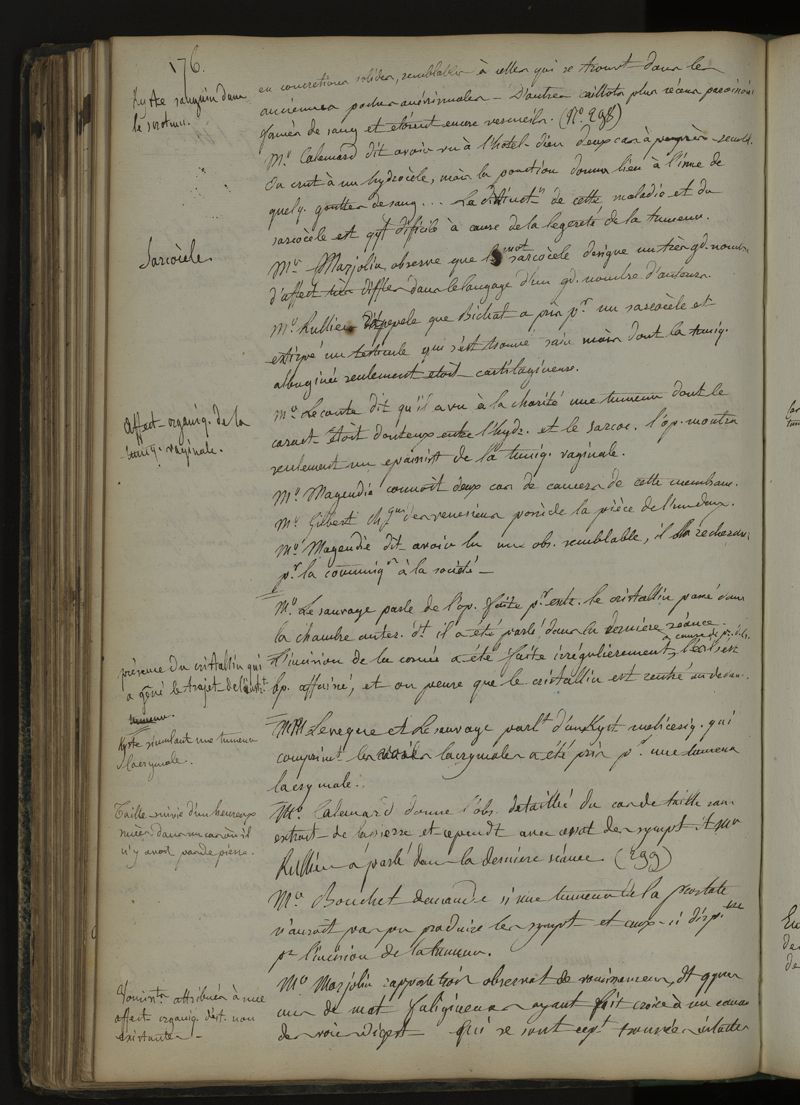 176.
en concretions solides, semblables à celles qui se trouvt dans les
Kyste sanguin dans
le scrotum.
anciennes poches anévrismales - D'autres caillots plus récens
formés de sang et étoient encore vermeils. (No. 298)
Mr. Calemard dit avoir vu à l'hotel-dieu deux cas à
On crut à un hydrocèle, mais la ponction donna lieu à l'issue de
quelq. gouttes de sang... La distinctn. de cette maladie et du
sarcocèle est qqf. difficile à cause de la legereté de la tumeur.
Sarcocèle.
Mr. Marjolin observe que le mot sarcocèle designe un très gd. nombre
d'affect. differ. dans le langage d'un gd. nombre d'auteurs.
Mr. Rullier rappele que Bichat a pris pr. un sarcocèle et
extirpé un testicule qui s'est trouvé sain mais dont la tuniq.
albuginée seulement étoit cartilagineuse.
Affect. organiq. de la
tuniq. vaginale.
Mr. Leconte dit qu'il a vu à la charité une tumeur dont le
caract. étoit douteux entre l'hydr. et le sarcoc. l'op. montra
seulement un epaissist. de la tuniq. vaginale.
Mr. Magendie connoit deux cas de cancers de cette membrane.
Mr. Gilbert chgien. des veneriens possède la pièce de l'un deux.
Mr. Magendie dit avoir lu une obs. semblable, il la recherchera
pr. la communiqr. à la société -
Mr. Lesauvage parle de l'op. faite pr. extr. le cristallin passé dans
la chambre anter. dt. il a été parlé dans la derniere séance.
présence du cristallin qui
a gêné le trajet de l'instt.
L'incision de la cornée a été faite irrégulièrement à cause de
l'œil est
affaissé, et on pense que le cristallin est rentré au dedans.
Kyste simulant une tumeur
lacrymale.
MM Leveque et Lesauvage parlt. d'un Kyst. meliceriq. qui
comprimt. les voies lacrymales a été pris pr. une tumeur
lacrymale.
Taille suivie d'un heureux
succès dans un cas où il
n'y avoit pas de pierre.
Mr. Calemard donne l'obs. détaillée du cas de taille sans
extract. de la pierre et cepend. avec cessat. des sympt. dt. Mr
Rullier a parlé dans la derniere séance. (299)
Mr. Bouchet demande si une tumeur de la prostate
n'auroit pas pu produire les sympt. et ceux-ci
pr. l'incision de la tumeur.
Vomists. attribués à une
affect. organiq. d'est. non
existante -
Mr. Marjolin rapporte trois observat. de vomissemens, dt. qques
uns de mat. fuligineuses ayant fait croire à un cancer
des voies digest. qui se sont cept. trouvées intactes